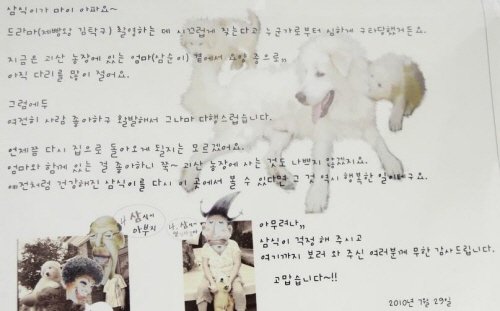 삼식이가 마이 아파요~
드라마(제빵왕 김탁구) 촬영하는 데 시끄럽게 짖는다고 누군가로부터 심하게 구타당했거든요.
지금은 괴산 농장에 있는 엄마(삼순이) 곁에서 요양 중으로,,
아직 다리를 많이 절어요.
그럼에두
여전히 사람 좋아하구 활발해서 그나마 다행스럽습니다.
언제쯤 다시 집으로 돌아오게 될지는 모르겠어요.
엄마와 함께 있는 걸 좋아하니 쭉~ 괴산 농장에 사는 것도 나쁘지 않겠지요.
예전처럼 건강해진 삼식이를 다시 이 곳에서 볼 수 있다면 그 것 역시 행복한 일이테구요.
나 삼식이
아부지
나 삼식이
아무려나,,
삼식이 걱정 해 주시고
여기까지 보러 와 주신 여러분께 무한 감사드립니다.
고맙습니다~!!
2010년 7월 29일